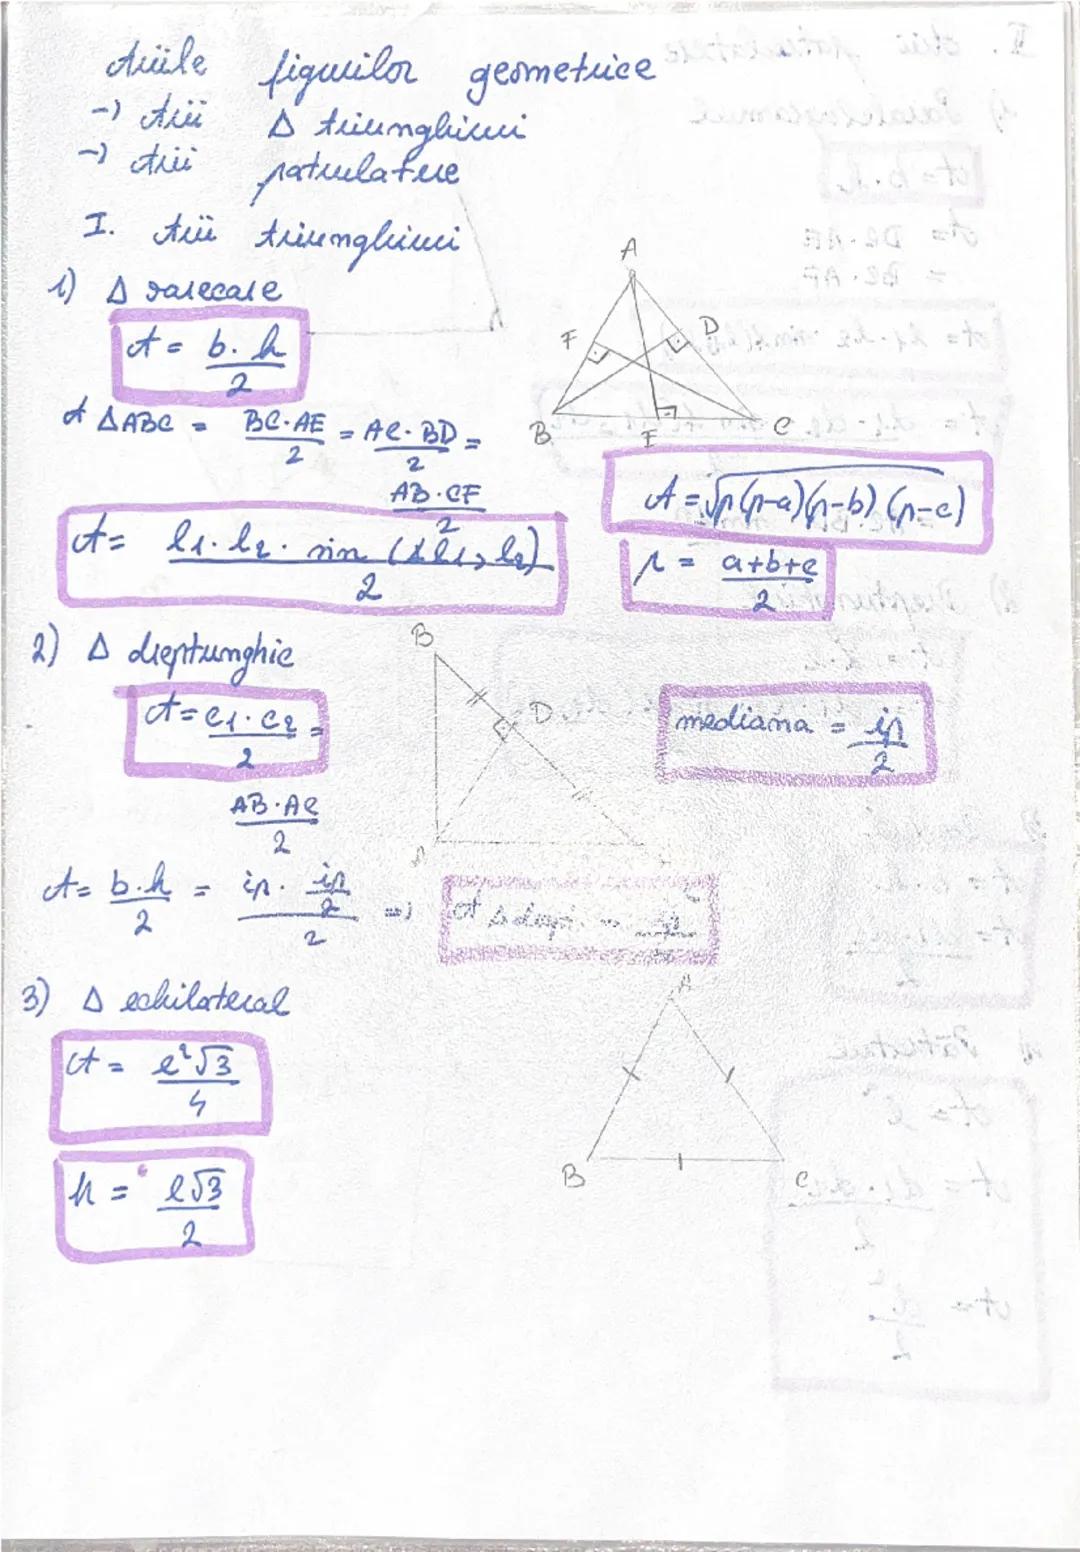 Ariile figurilor geometrice
-> Arii Δ triunghiuri
-> Arii patrulatere
I. Arii triunghiuri
1) Δ oarecare
A = b·h / 2
A ΔABC = BC·AE / 2 = AC·BD / 2 =
AB·CF / 2
A = l1·l2·sin(∢l1, l2) / 2
A
F
D
B
E
C
A = √p(p-a)(p-b)(p-c)
p = a+b+c / 2
2) Δ dreptunghic
A = c1·c2 / 2 =
AB·AC / 2
A = b·h / 2 = ip· ip/2 / 2 =>
A Δ drept. = ip
B
D
A
mediana = ip / 2
3) Δ echilateral
A = l²√3 / 4
h = l√3 / 2
A
B
C